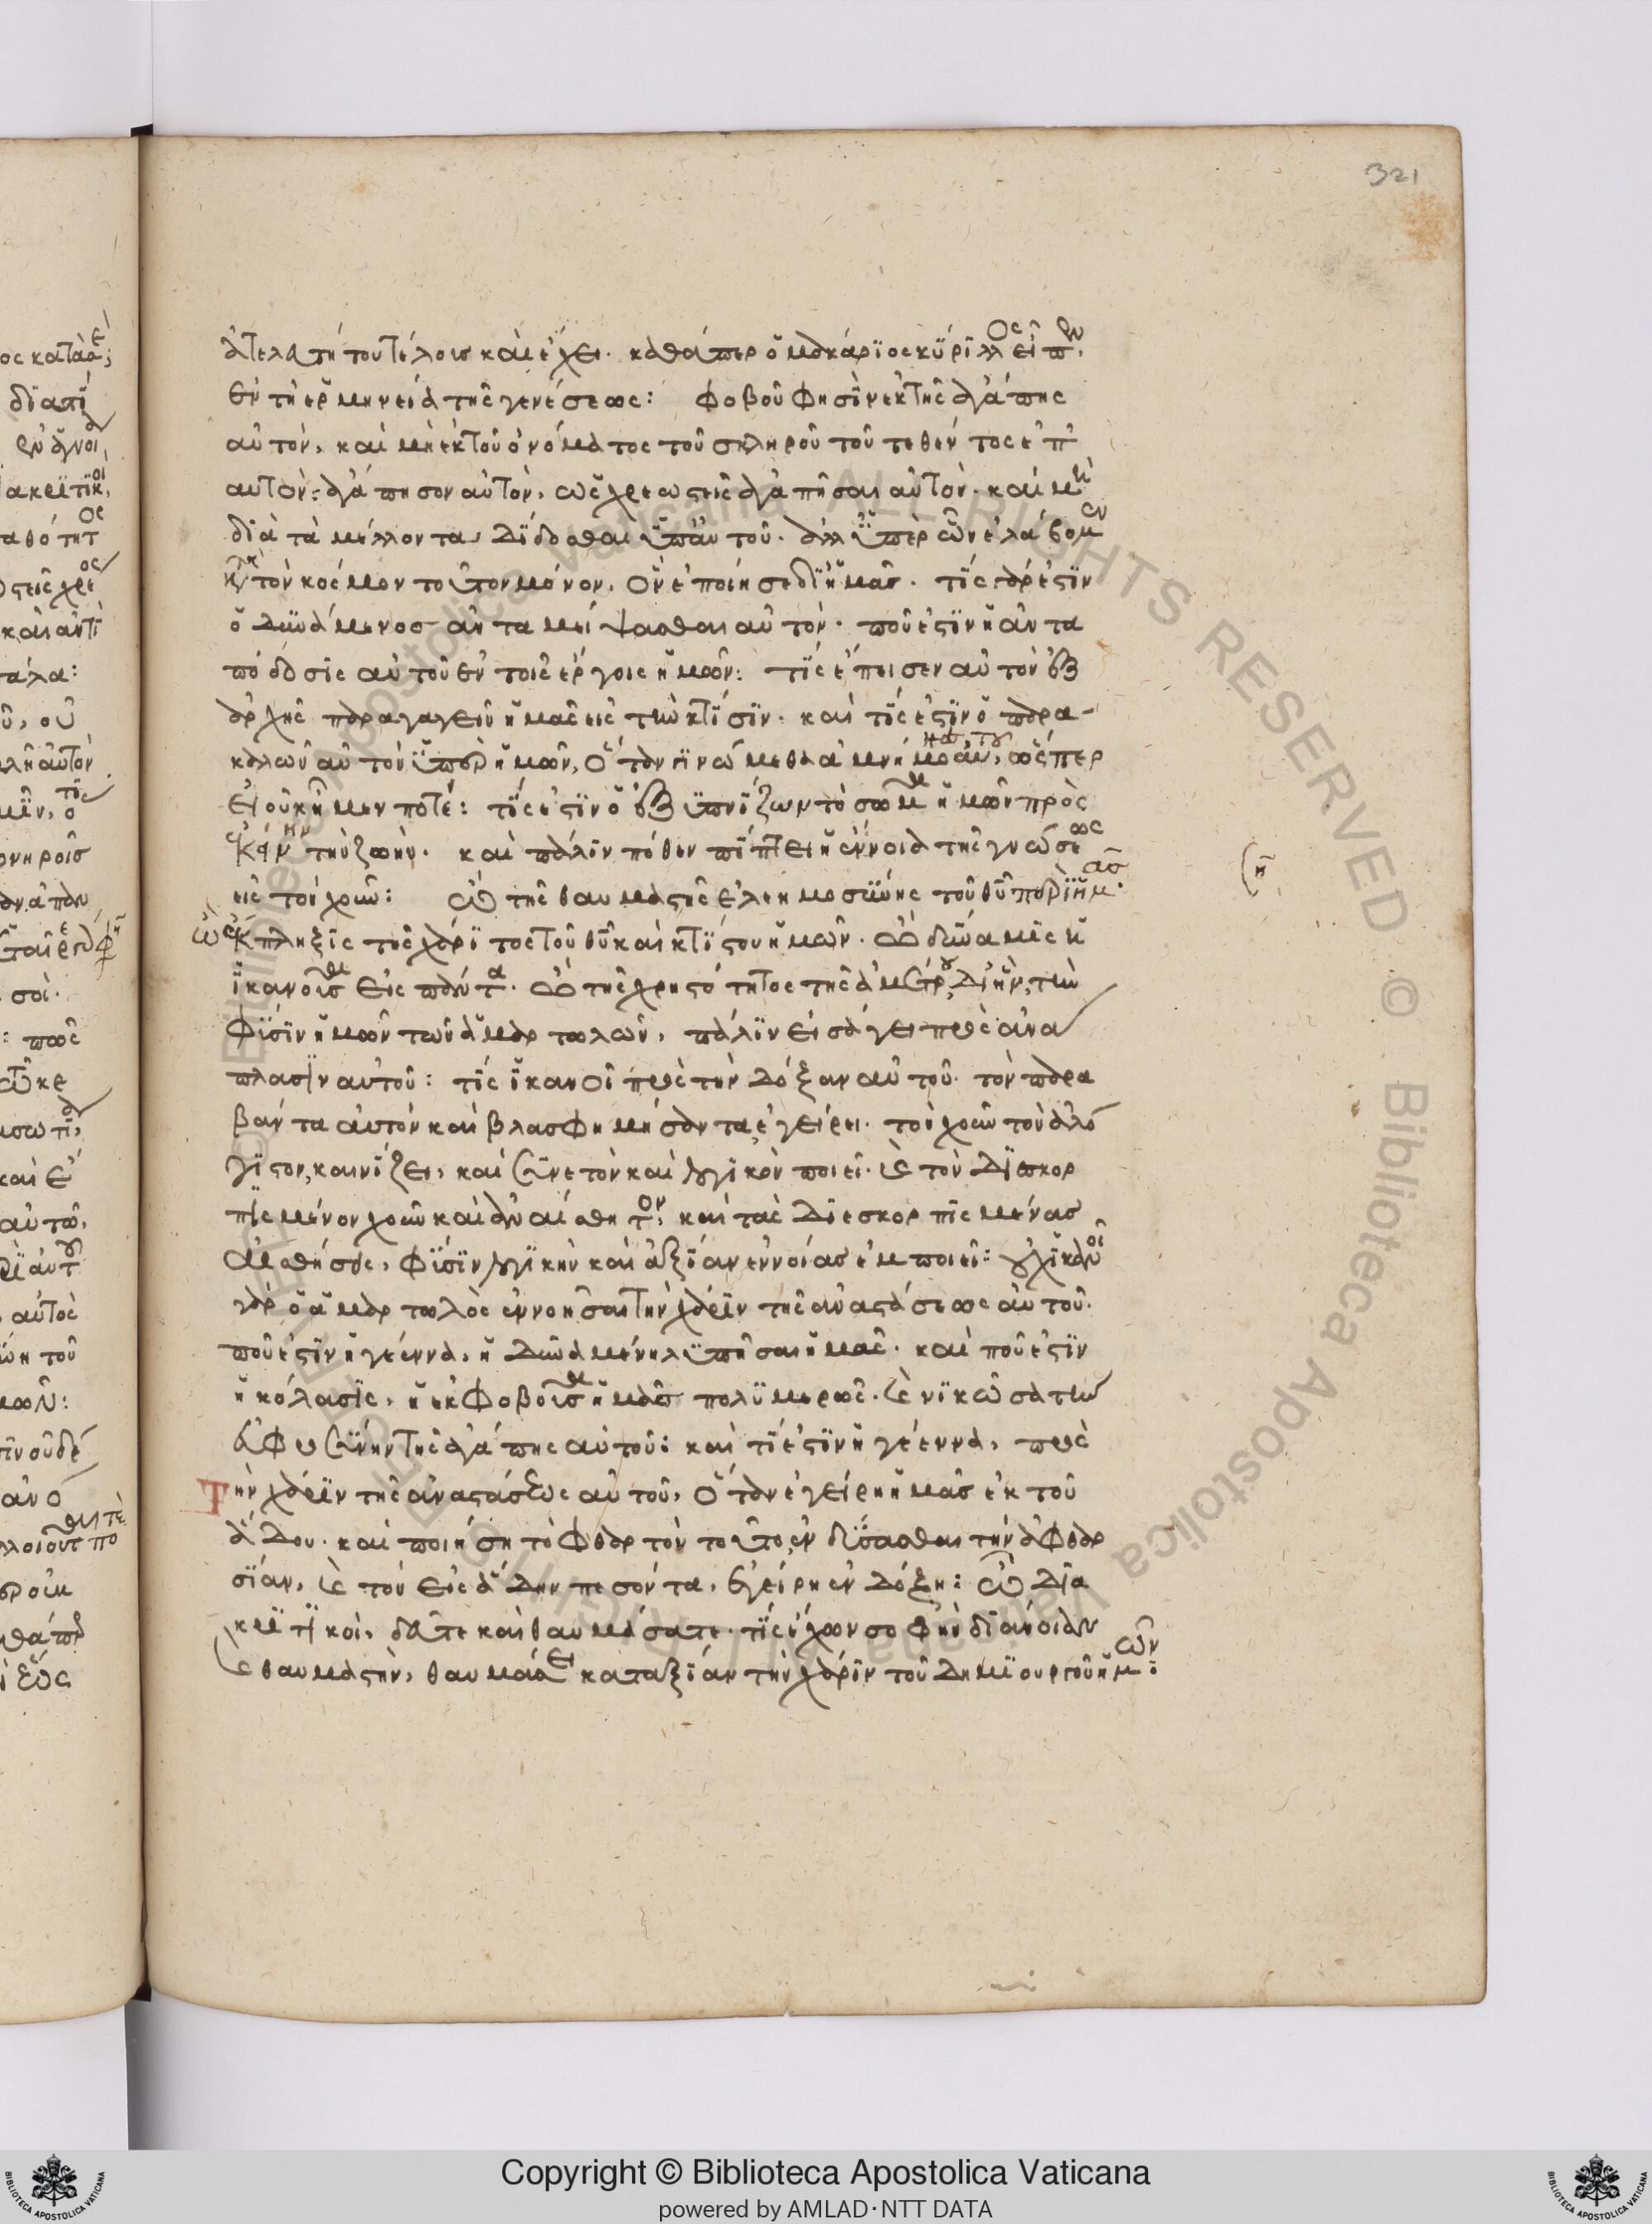 321
ἀγαπητοῦ τέλους καὶ ἔχει. καθάπερ ὁ μακάριος κύριλλος εἶπεν,
ἐν τῇ ἑρμηνείᾳ τῆς γενέσεως: φοβοῦ φησὶν ἐκ τῆς ἀγάπης
αὐτὸν, καὶ μὴ ἐκ τοῦ ὀνόματος τοῦ σκληροῦ τοῦ τεθέντος ἐπ'
αὐτόν: ἀγάπησον αὐτὸν, ὡς χρεωστεῖς ἀγαπῆσαι αὐτόν. καὶ μὴ
διὰ τὰ μέλλοντα δίδοσθαι ὑπ' αὐτοῦ. ἀλλ' ὑπὲρ ὧν ἐλάβομεν
καὶ τὸν κόσμον τοῦτον μόνον, ὃν ἐποίησε δι' ἡμᾶς. τίς γάρ ἐστιν
ὁ δυνάμενος ἀνταμείψασθαι αὐτόν. ποῦ ἐστιν ἡ ἀντα
πόδοσις αὐτοῦ ἐν τοῖς ἔργοις ἡμῶν: τίς ἔπεισεν αὐτὸν ἐξ
ἀρχῆς παραγαγεῖν ἡμᾶς εἰς τὴν κτίσιν. καὶ τίς ἐστιν ὁ παρα-
καλῶν αὐτὸν ὑπὲρ ἡμῶν, ὅταν γινώμεθα ἀμνήμονες αὐτοῦ, ὥσπερ
εἰ οὐκ ἦμεν ποτέ: τίς ἐστιν ὁ ἐξυπνίζων τὸ σῶμα ἡμῶν πρὸς
ἐκείνην τὴν ζωήν. καὶ πάλιν πόθεν πίπτει ἡ ἔννοια τῆς γνώσεως
εἰς τὸν χοῦν: ὢ τῆς θαυμαστῆς ἐλεημοσύνης τοῦ θυ περὶ ἡμᾶς.
ὢ ἔκπληξις τῆς χάριτος τοῦ θυ καὶ κτίστου ἡμῶν. ὢ δύναμις ἡ
ἱκανοῦσα εἰς πάντα. ὢ τῆς χρηστότητος τῆς ἀμέτρου, δι' ἣν, τὴν
φύσιν ἡμῶν τῶν ἁμαρτωλῶν, πάλιν εἰσάγει πρὸς ἀνά
πλασιν αὐτοῦ: τίς ἱκανοῖ πρὸς τὴν δόξαν αὐτοῦ. τὸν παρα
βάντα αὐτὸν καὶ βλασφημήσαντα ἐγείρει. τὸν χοῦν τὸν ἀλό
γιστον, καινίζει, καὶ συνετὸν καὶ λογικὸν ποιεῖ. καὶ τὸν διεσκορ
πισμένον χοῦν καὶ ἀναίσθητον, καὶ τὰς διεσκορπισμένας
αἰσθήσεις, φύσιν λογικὴν καὶ ἀξίαν ἐννοίας ἐμποιεῖ: οὐχ ἱκανοῖ
γὰρ ὁ ἁμαρτωλὸς ἐννοῆσαι τὴν χάριν τῆς ἀναστάσεως αὐτοῦ.
ποῦ ἐστιν ἡ γέεννα, ἡ δυναμένη λυπῆσαι ἡμᾶς. καὶ ποῦ ἐστιν
ἡ κόλασις, ἡ ἐκφοβοῦσα ἡμᾶς πολυμερῶς. καὶ νικῶσα τὴν
εὐφροσύνην τῆς ἀγάπης αὐτοῦ: καὶ τί ἐστιν ἡ γέεννα, πρὸς
τὴν χάριν τῆς ἀναστάσεως αὐτοῦ, ὅταν ἐγείρῃ ἡμᾶς ἐκ τοῦ
ᾅδου. καὶ ποιήσῃ τὸ φθαρτὸν τοῦτο, ἐνδύσασθαι τὴν ἀφθαρ
σίαν, καὶ τὸν εἰς ᾅδην πεσόντα, ἐγείρῃ ἐν δόξῃ: ὢ δια
κριτικοὶ, δεῦτε καὶ θαυμάσατε. τίς ἔχων σοφὴν διάνοιαν
καὶ θαυμαστὴν, θαυμάσει κατ' ἀξίαν τὴν χάριν τοῦ δημιουργοῦ ἡμῶν:
Copyright © Biblioteca Apostolica Vaticana
powered by AMLAD·NTT DATA